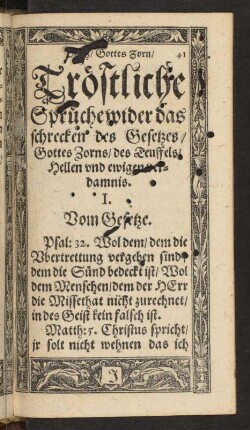 / Gottes Zorn/ 41
Tröstliche
Sprüche wider das
schrecken des Gesetzes/
Gottes Zorns/ des Teuffels/
Hellen vnd ewiger ver-
damnis.
I.
Vom Gesetze.
Psal: 32. Wol dem/ dem die
Vbertrettung vergeben sind/
dem die Sünd bedeckt ist/ Wol
dem Menschen/ dem der HErr
die Missethat nicht zurechnet/
in des Geist kein falsch ist.
Matth: 5. Christus spricht/
jr solt nicht wehnen das ich
J